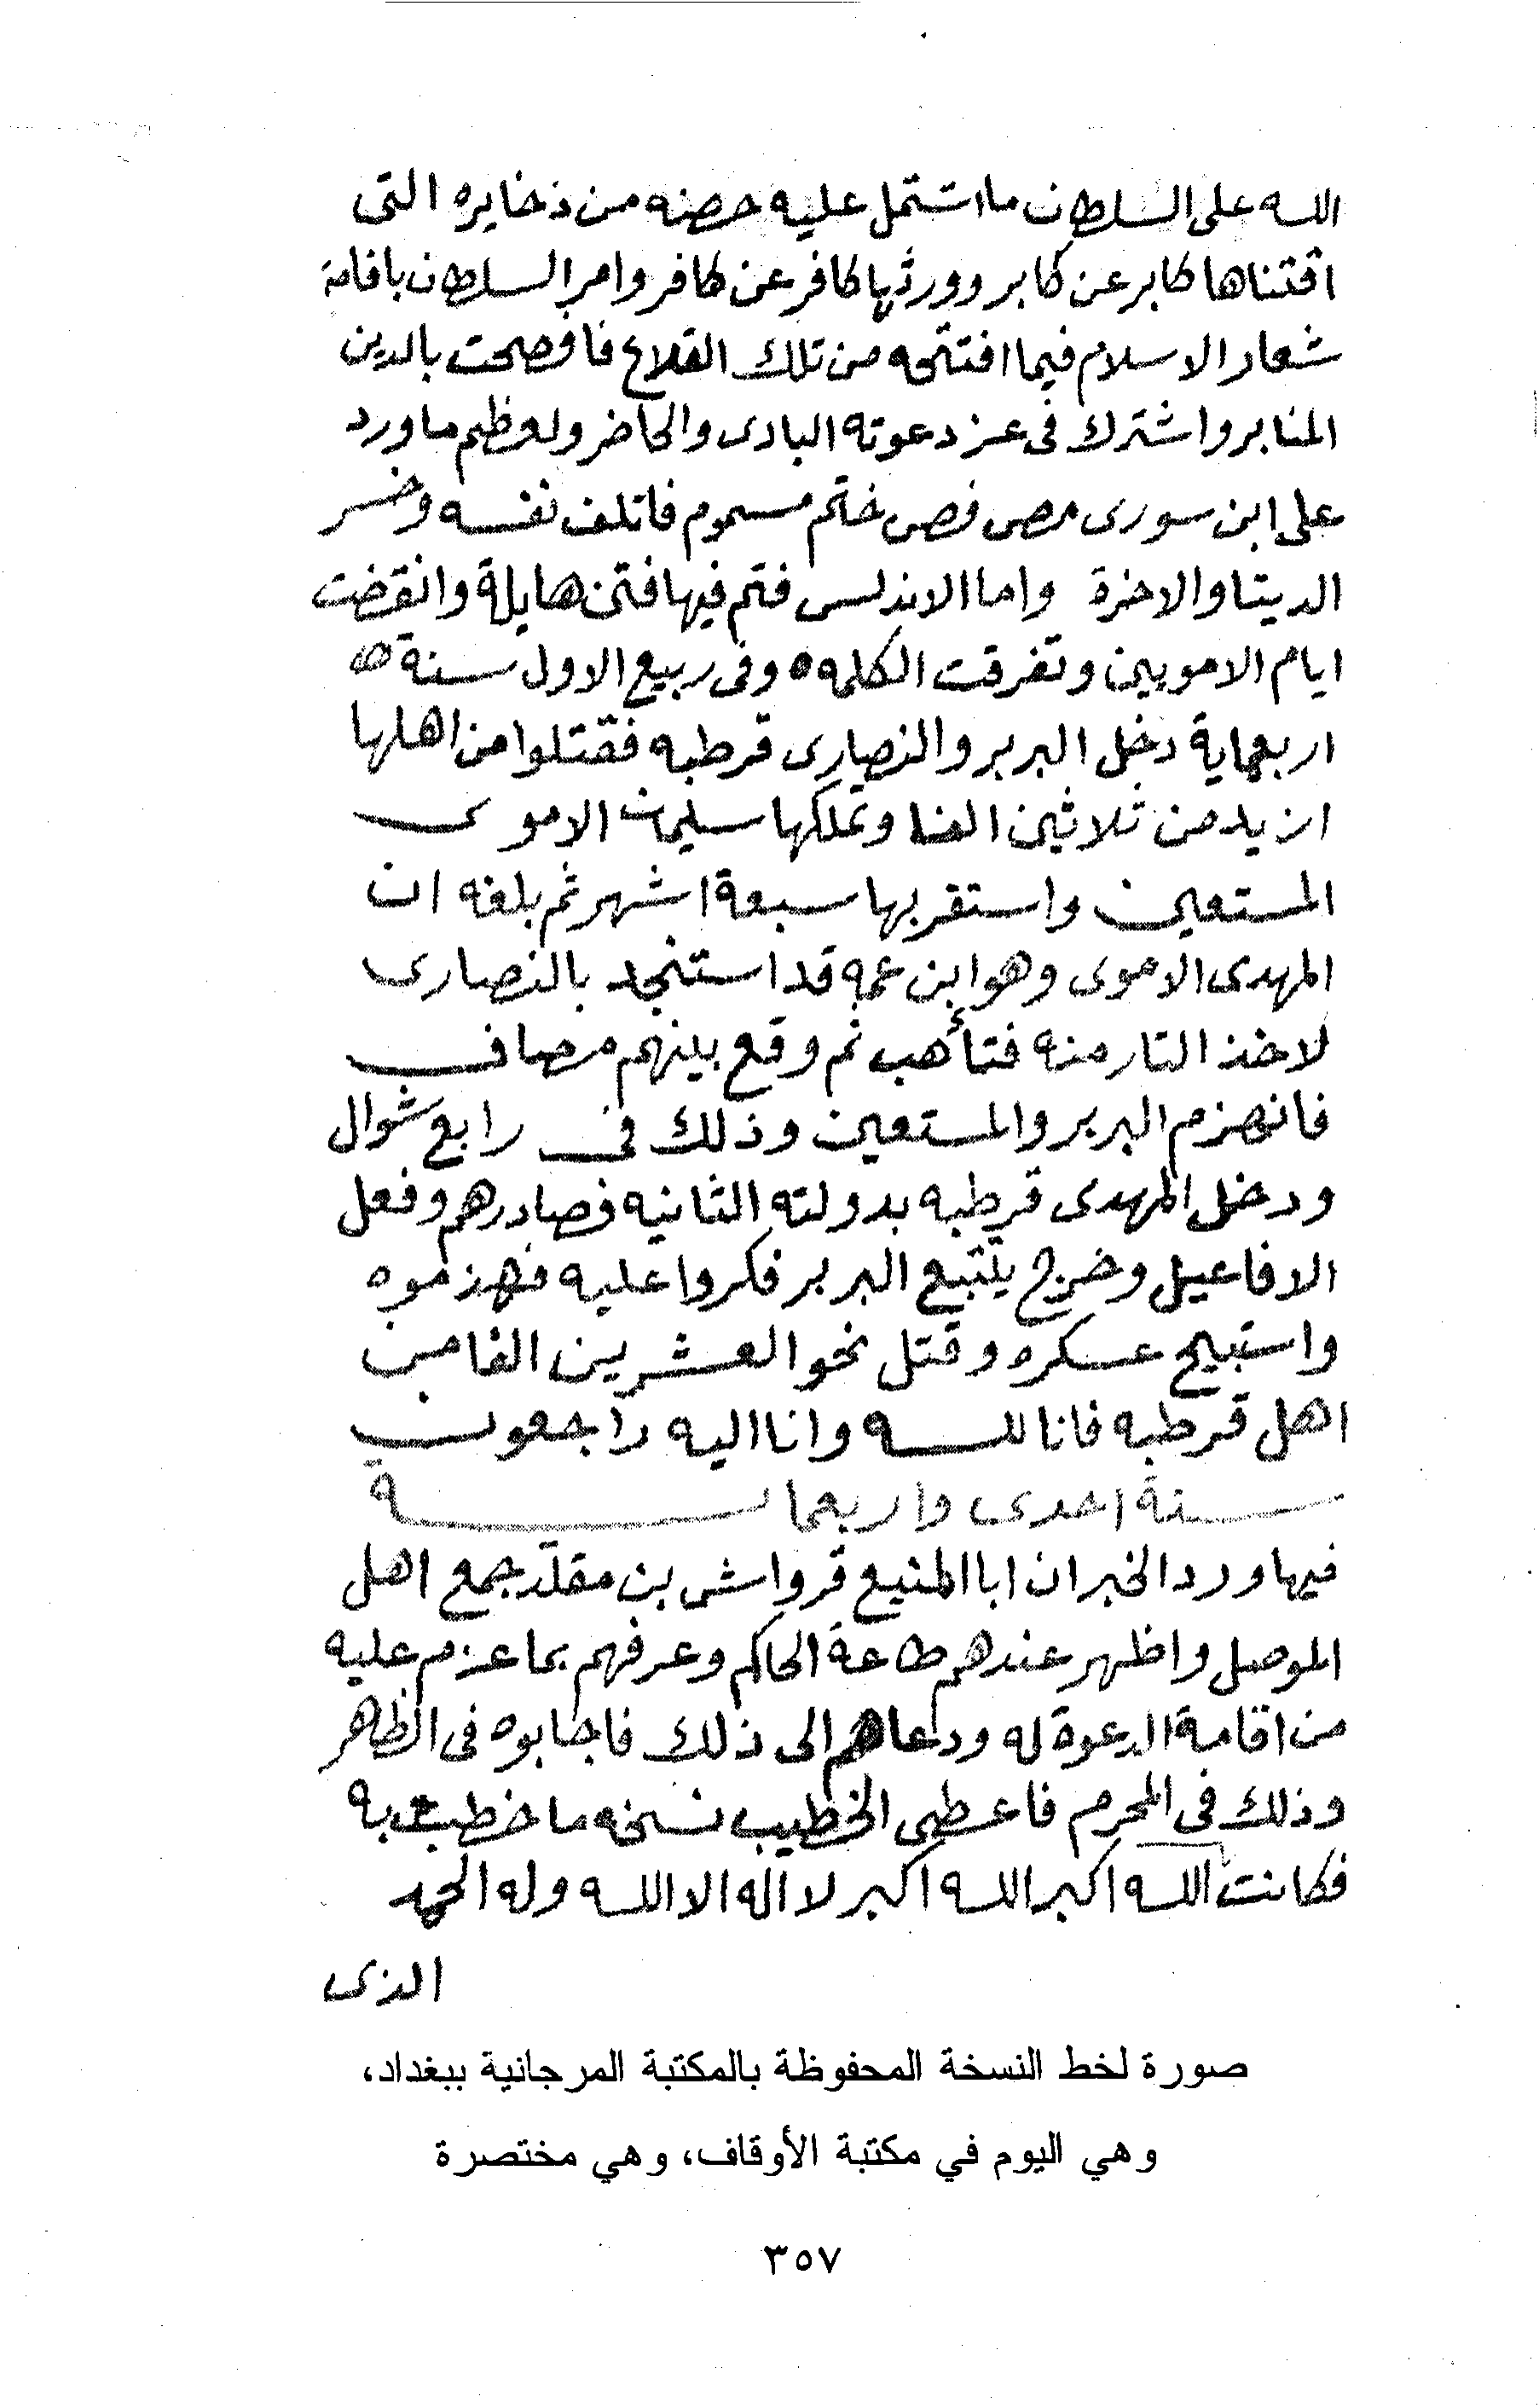 الله على السلطان ما اشتمل عليه حصنه من ذخايره التى
اقتناها كابر عن كابر وورثها كافر عن كافر وامر السلطان باقامة
شعار الاسلام فيما افتتحه من تلك القلاع فافصحت بالدين
المنابر واشترك فى عز دعوته البادى والحاضر ولعظم ما ورد
على ابن سورى مص فص ختم مسموم فاتلف نفسه وخسر
الدينا والاخرة واما الاندلس فتم فيها فتن هايلة وانقضت
ايام الامويين وتفرقت الكلمه ه وفى ربيع الاول سنة
اربعماية دخل البربر والنصارى قرطبه فقتلوا من اهلها
ازيد من ثلاثين الفا وتملكها سليمان الاموى
المستعين واستقر بها سبعة اشهر ثم بلغه ان
المهدى الاموى وهو ابن عمه قد استنجد بالنصارى
لاخذ الثار منه فتأهب ثم وقع بينهم مصاف
فانهزم البربر والمستعين وذلك فى رابع شوال
ودخل المهدى قرطبه بدولته الثانيه فصادرهم وفعل
الافاعيل وخرج يتتبع البربر فكروا عليه فهزموه
واستبيح عسكره وقتل نحو العشرين الفا من
اهل قرطبه فانا لله وانا اليه راجعون
سنة احدى واربعمائة
فيها ورد الخبر ان ابا المنيع قرواش بن مقلد جمع اهل
الموصل واظهر عندهم طاعة الحاكم وعرفهم بما عزم عليه
من اقامة الدعوة له ودعاهم الى ذلك فاجابوه فى الظاهر
وذلك فى المحرم فاعطى الخطيب نسخه ما خطب به
فكانت الله اكبر الله اكبر لا اله الا الله وله الحمد
الذى
صورة لخط النسخة المحفوظة بالمكتبة المرجانية ببغداد،
وهي اليوم في مكتبة الأوقاف، وهي مختصرة
٣٥٧